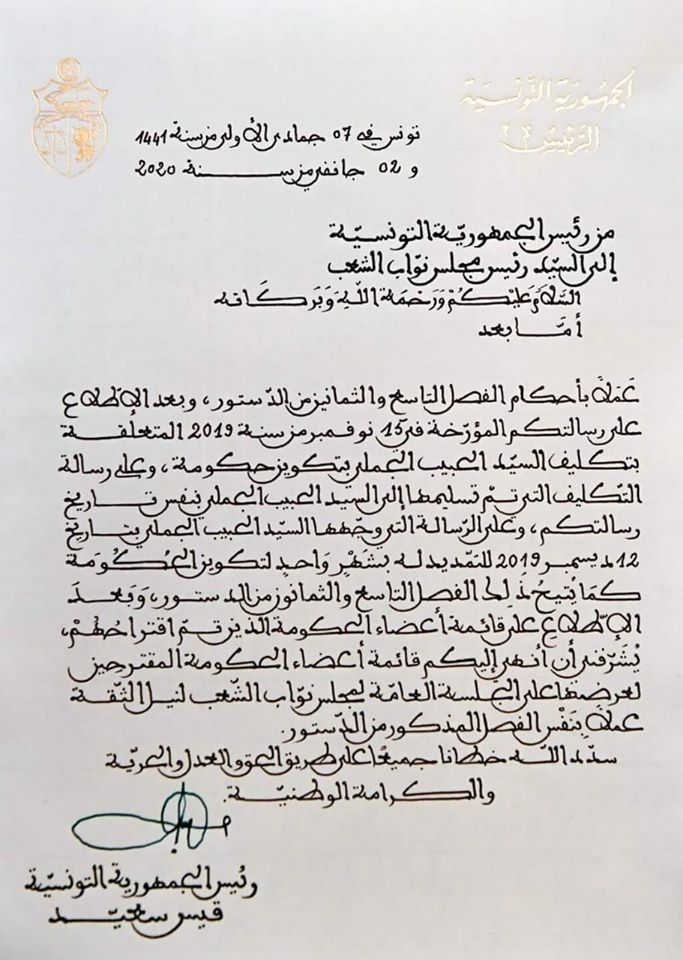 الجمهورية التونسية
الرئيس
تونس في 07 جمادى الأولى من سنة 1441
و 02 جانفي من سنة 2020
من رئيس الجمهوريّة التونسيّة
إلى السيّد رئيس مجلس نوّاب الشعب
السَّلَامُ عَلَيْكُمْ وَرَحْمَةُ اللَّهِ وَبَرَكَاتُهُ
أمَّا بعد
عَمَلًا بأحكام الفصل التاسع والثمانين من الدّستور، وبعد الإطّلاع
على رسالتكم المؤرّخة في 15 نوفمبر من سنة 2019 المتعلّقة
بتكليف السيّد الحبيب الجملي بتكوين حكومة، وعلى رسالة
التكليف التي تمّ تسليمها إلى السيّد الحبيب الجملي بنفس تاريخ
رسالتكم، وعلى الرّسالة التي وجّهها السيّد الحبيب الجملي بتاريخ
12 ديسمبر 2019 للتمديد له بشَهْرٍ وَاحدٍ لتكوين الحُكُومَة
كمَا يُتيحُ ذَلِكَ الفصل التاسع والثمانون من الدستور، وَبَعدَ
الإطّلاع على قائمة أعضاء الحكومة الذين تمّ اقتراحُهُمْ،
يُشَرّفني أن أنهي إليكم قائمة أعضاء الحكومة المقترحين
لعرضها على الجلسة العامّة لمجلس نوّاب الشّعب لنيل الثّقة
عملًا بِنَفْس الفصل المذكور من الدّستور.
سدّد اللّه خطانا جميعًا على طريق الحقّ والعدل والحريّة
والكرامة الوطنيّة.
رئيس الجمهورية التونسيّة
قيس سعيّد